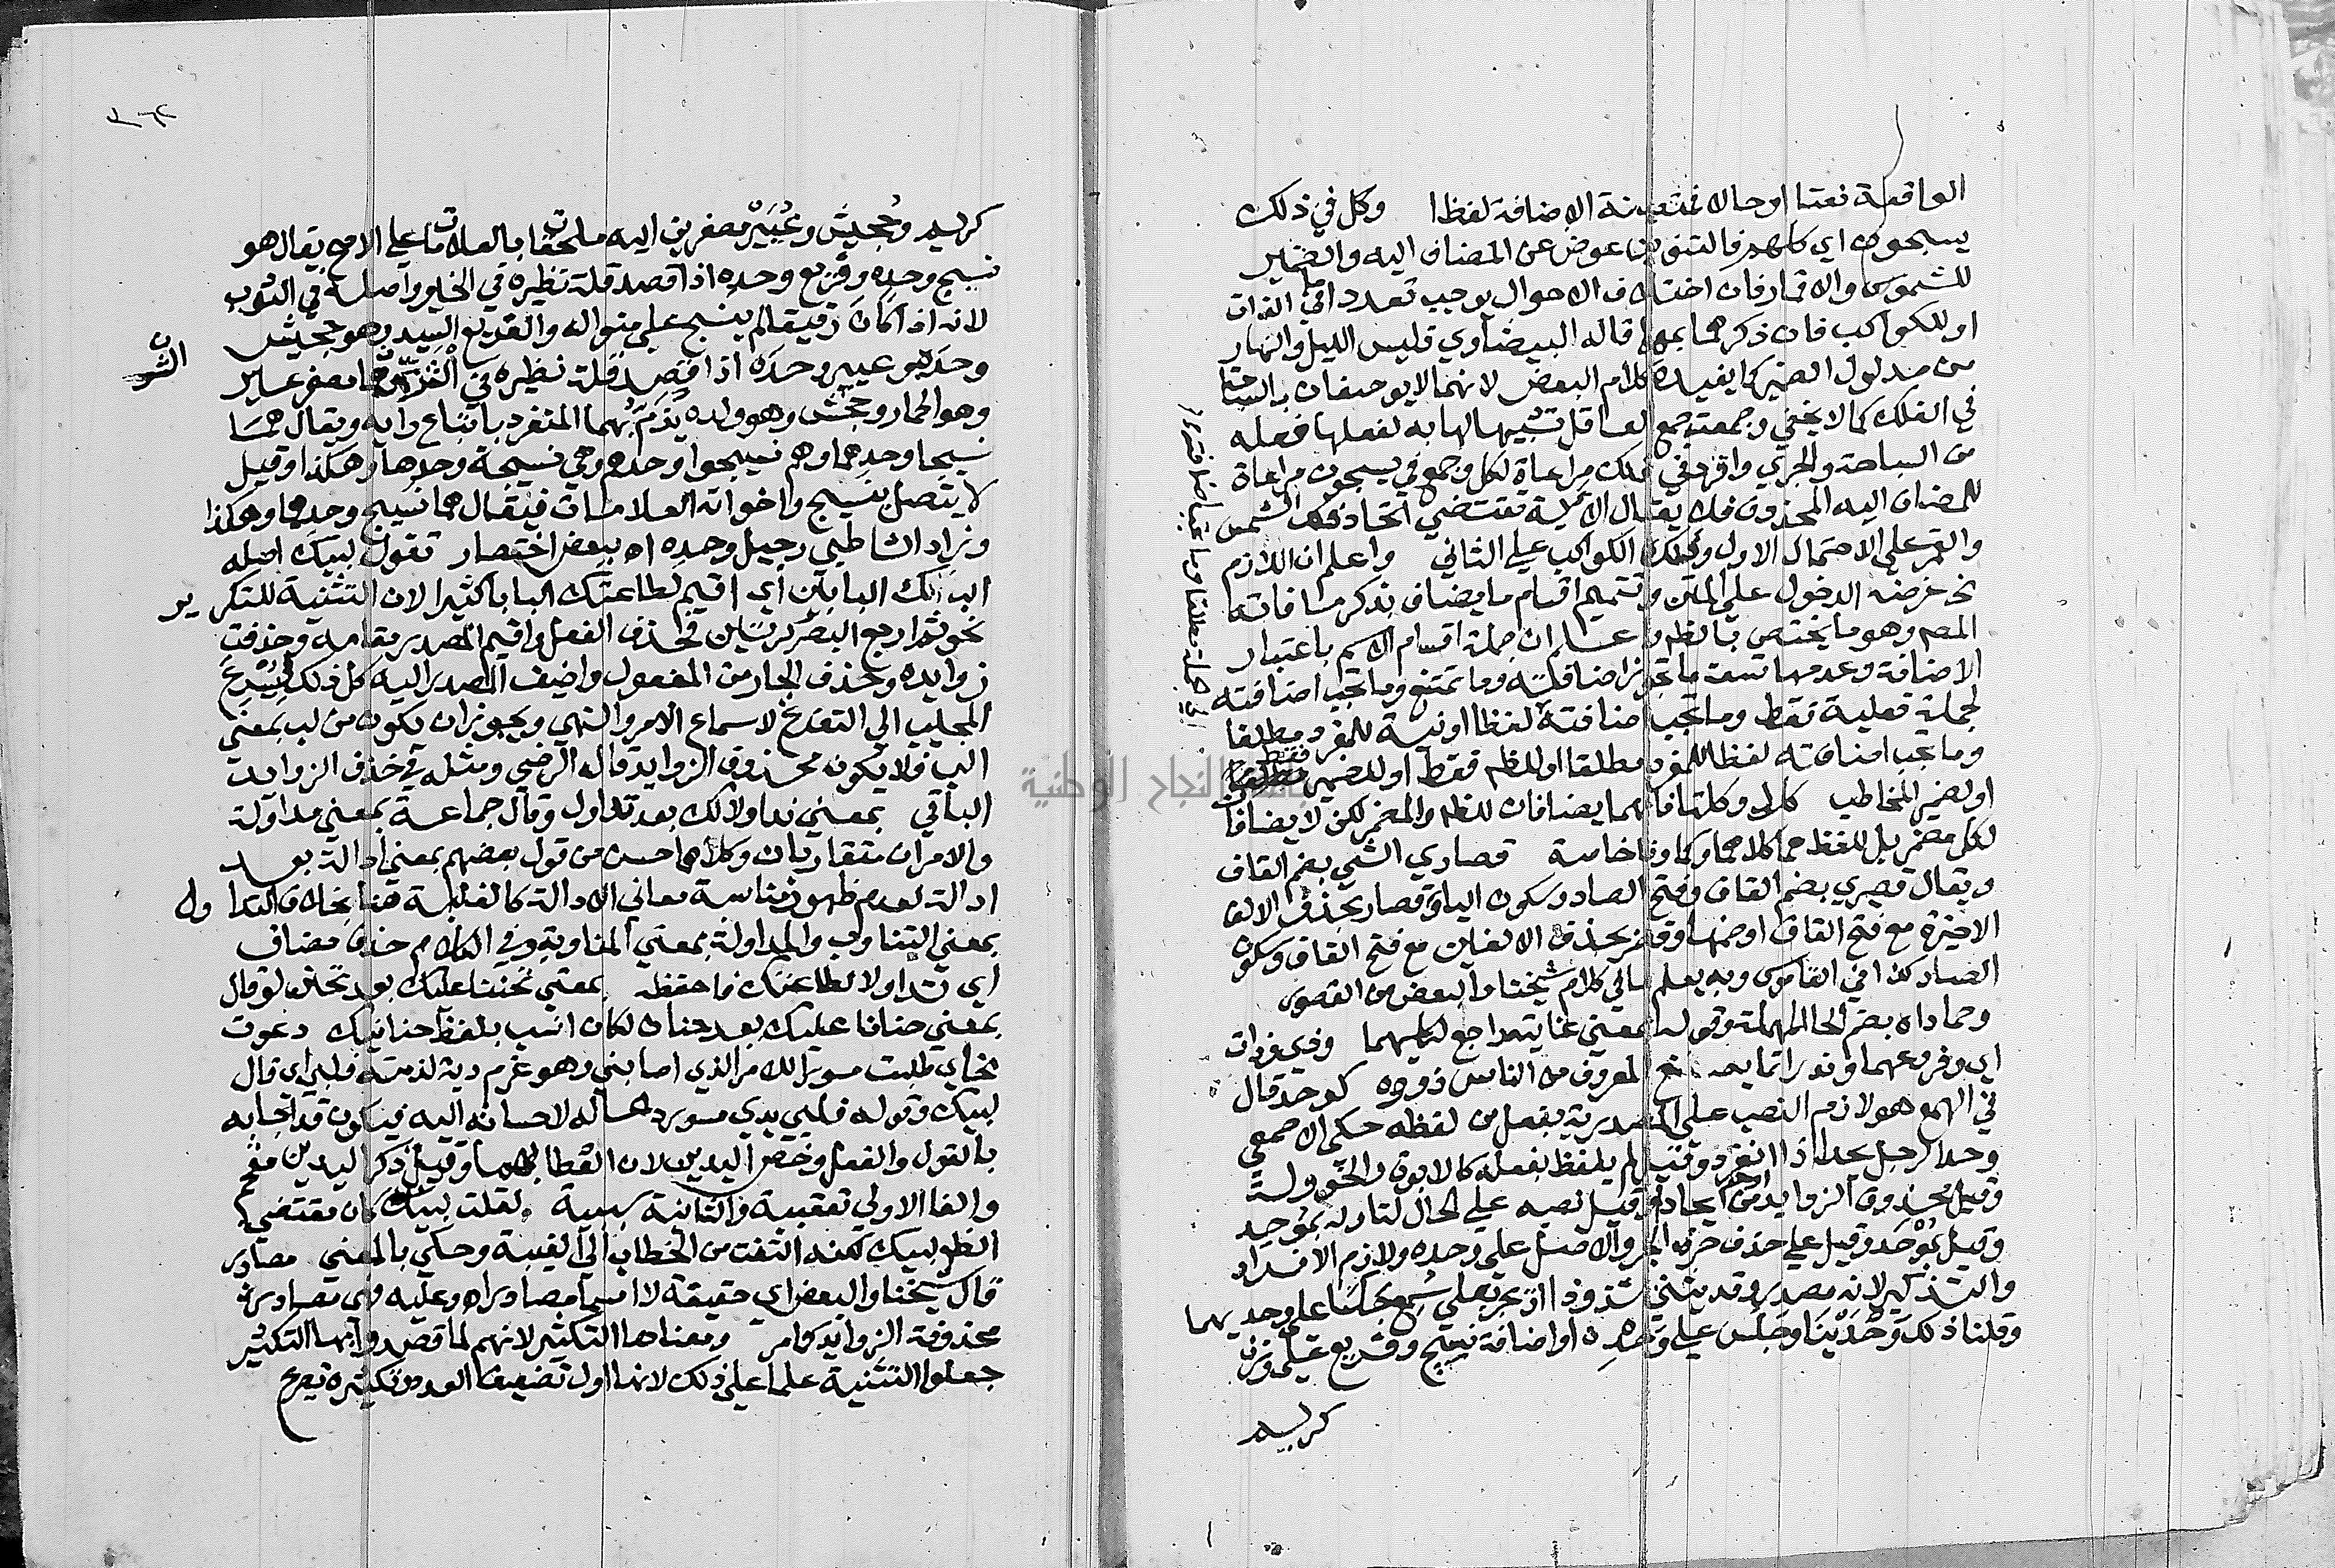 الواقعة نعتا او حالا فتتعين الاضافة لفظا وكل في ذلك
يسبحون اي كلهم فالتنوين عوض عن المضاف اليه والضمير
للشموس والاقمار فان اختلاف الاحوال يوجب تعددا ما في الذات
او للكواكب فان ذكرهما بها قاله البيضاوي فليس الليل والنهار
من مدلول الضمير كما يفيده كلام البعض لانهما لا يوصفان بالسباحة
في الفلك كما لا يخفى وجمعه جمع العاقل تشبيها لها به لفعلها فعله
من السباحة والجري وافرد في فلك مراعاة لكل وجمع في يسبحون مراعاة
للمضاف اليه المحذوف فلا يقال الآية تقتضي اتحاد فلك الشمس
والقمر على الاحتمال الاول وفلك الكواكب على الثاني واعلم ان اللازم
الخ غرضه الدخول على المتن وتتميم اقسام ما يضاف بذكر ما فاته
المصه وهو ما يختص بالظه واعلم ان جملة اقسام الاسم باعتبار
الاضافة وعدمها تسعة ما تجوز اضافته وما تمتنع وما تجب اضافته
لجملة فعلية فقط وما تجب اضافته لفظا او نية للمفرد مطلقا
وما تجب اضافته لفظا للمفرد مطلقا او للظه فقط او للضمير مطلقا
او لضمير المخاطب كلا وكلتا فانهما يضافان للظه والمضمر لكن لا يضافا
لكل مضمر بل للفظ هما كلاهما وكما ونا خاصة قصارى الشي بضم القاف
ويقال قصيرى بضم القاف وفتح الصاد وسكون الياء وقصار بحذف الالف
الاخيرة مع فتح القاف او ضمها وقصر بحذف الالفين مع فتح القاف وسكون
الصاد كذا في القاموس وبه يعلم ما في كلام شيخنا والبعض من القصور
وحماداه بضم الحاء المهملة وقوله بمعنى غايته راجع لكليهما وذي وذات
اي وفروعهما وندر انما يعرف المعروف من الناس ذووه كوحد قال
في الهمع هو لازم النصب على المصدرية بفعل من لفظه حكى الاصمعي
وحد الرجل يحد اذا انفرد وقيل لم يلفظ بفعله كالابوة والخؤولة
وقيل محذوف الزوايد من ايحاد وقيل نصبه على الحال لتاوله بموحد
وقيل بموحد وقيل على حذف حرف الجر والاصل على وحده ولازم الافراد
والتذكير لانه مصدر وقد يثنى شذوذا او يجر بعلى سمع جلسا على وحديهما
وقلنا ذلك وحدينا وجلس على وحده او اضافة نسيج وقريع على وزن
كريم
كريم وجحيش وعيير مصغرين اليه ملحقا بالعلامات على الاصح يقال هو
نسيج وحده وقريع وحده اذا قصد قلة نظيره في الخير واصله في الثوب
لانه اذا كان رفيقا لم ينسج على منواله والقريع السيد وهو جحيش
وحده وعيير وحده اذا قصد قلة نظيره في الشر وهما مصغر عير
الشر
وهو الحمار وجحش وهو ولده يذم بهما المنفرد باتباع رايه ويقال هما
نسيجا وحدهما وهم نسيجوا وحدهم وهي نسيجة وحدها وهكذا وقيل
لا يتصل بنسيج واخواته العلامات فيقال هما نسيج وحدهما وهكذا
وزاد الشاطبي رجيل وحده اه ببعض اختصار تقول لبيك اصله
البّ لك البابين اي اقيم لطاعتك البابا كثيرا لان التثنية للتكرير
نحو ثم ارجع البصر كرتين فحذف الفعل واقيم المصدر مقامه وحذفت
زوايده وحذف الجار من المفعول واضيف المصدر اليه كل ذلك ليسرع
المجيب الى التفرغ لاستماع الامر والنهي ويجوز ان يكون من لب بمعنى
الب فلا يكون محذوف الزوايد قاله الرضي ومثله في حذف الزوايد
الباقي بمعنى تداولا لك بعد تداول وقال جماعة بمعنى مداولة
والامران متقاربان وكلاهما حسن من قول بعضهم بمعنى ادالة بعد
ادالة لعدم ظهور مناسبة معاني الادالة كالغلبة هنا بخلاف التداول
بمعنى التناوب والمداولة بمعنى المناوبة وفي الكلام حذف مضاف
اي تداولا لطاعتك فاحفظه بمعنى تحننا عليك بعد تحنن لو قال
بمعنى حنانا عليك بعد حنان لكان انسب بلفظ حنانيك دعوت
الخ اي طلبت مسورا للامر الذي اصابني وهو غرم دية لزمته فلبى اي قال
لبيك وقوله فلبي يدي مسور دعا له لاحسانه اليه فيكون قد اجابه
بالقول والفعل وخص اليدين لان العطا بهما وقيل ذكر اليدين مقحم
والفا الاولى تعقيبية والثانية سببية لقلت لبيه كان مقتضى
الظه لبيك لكنه التفت من الخطاب الى الغيبة وحكى بالمعنى مصادر
قال شيخنا والبعض اي حقيقة لا اسما مصادر اه وعليه فهي مصادر
محذوفة الزوايد كما مر ومعناها التكثير لانهم لما قصدوا بها التكثير
جعلوا التثنية علما على ذلك لانها اول تضعيف العدد وتكثيره تصريح